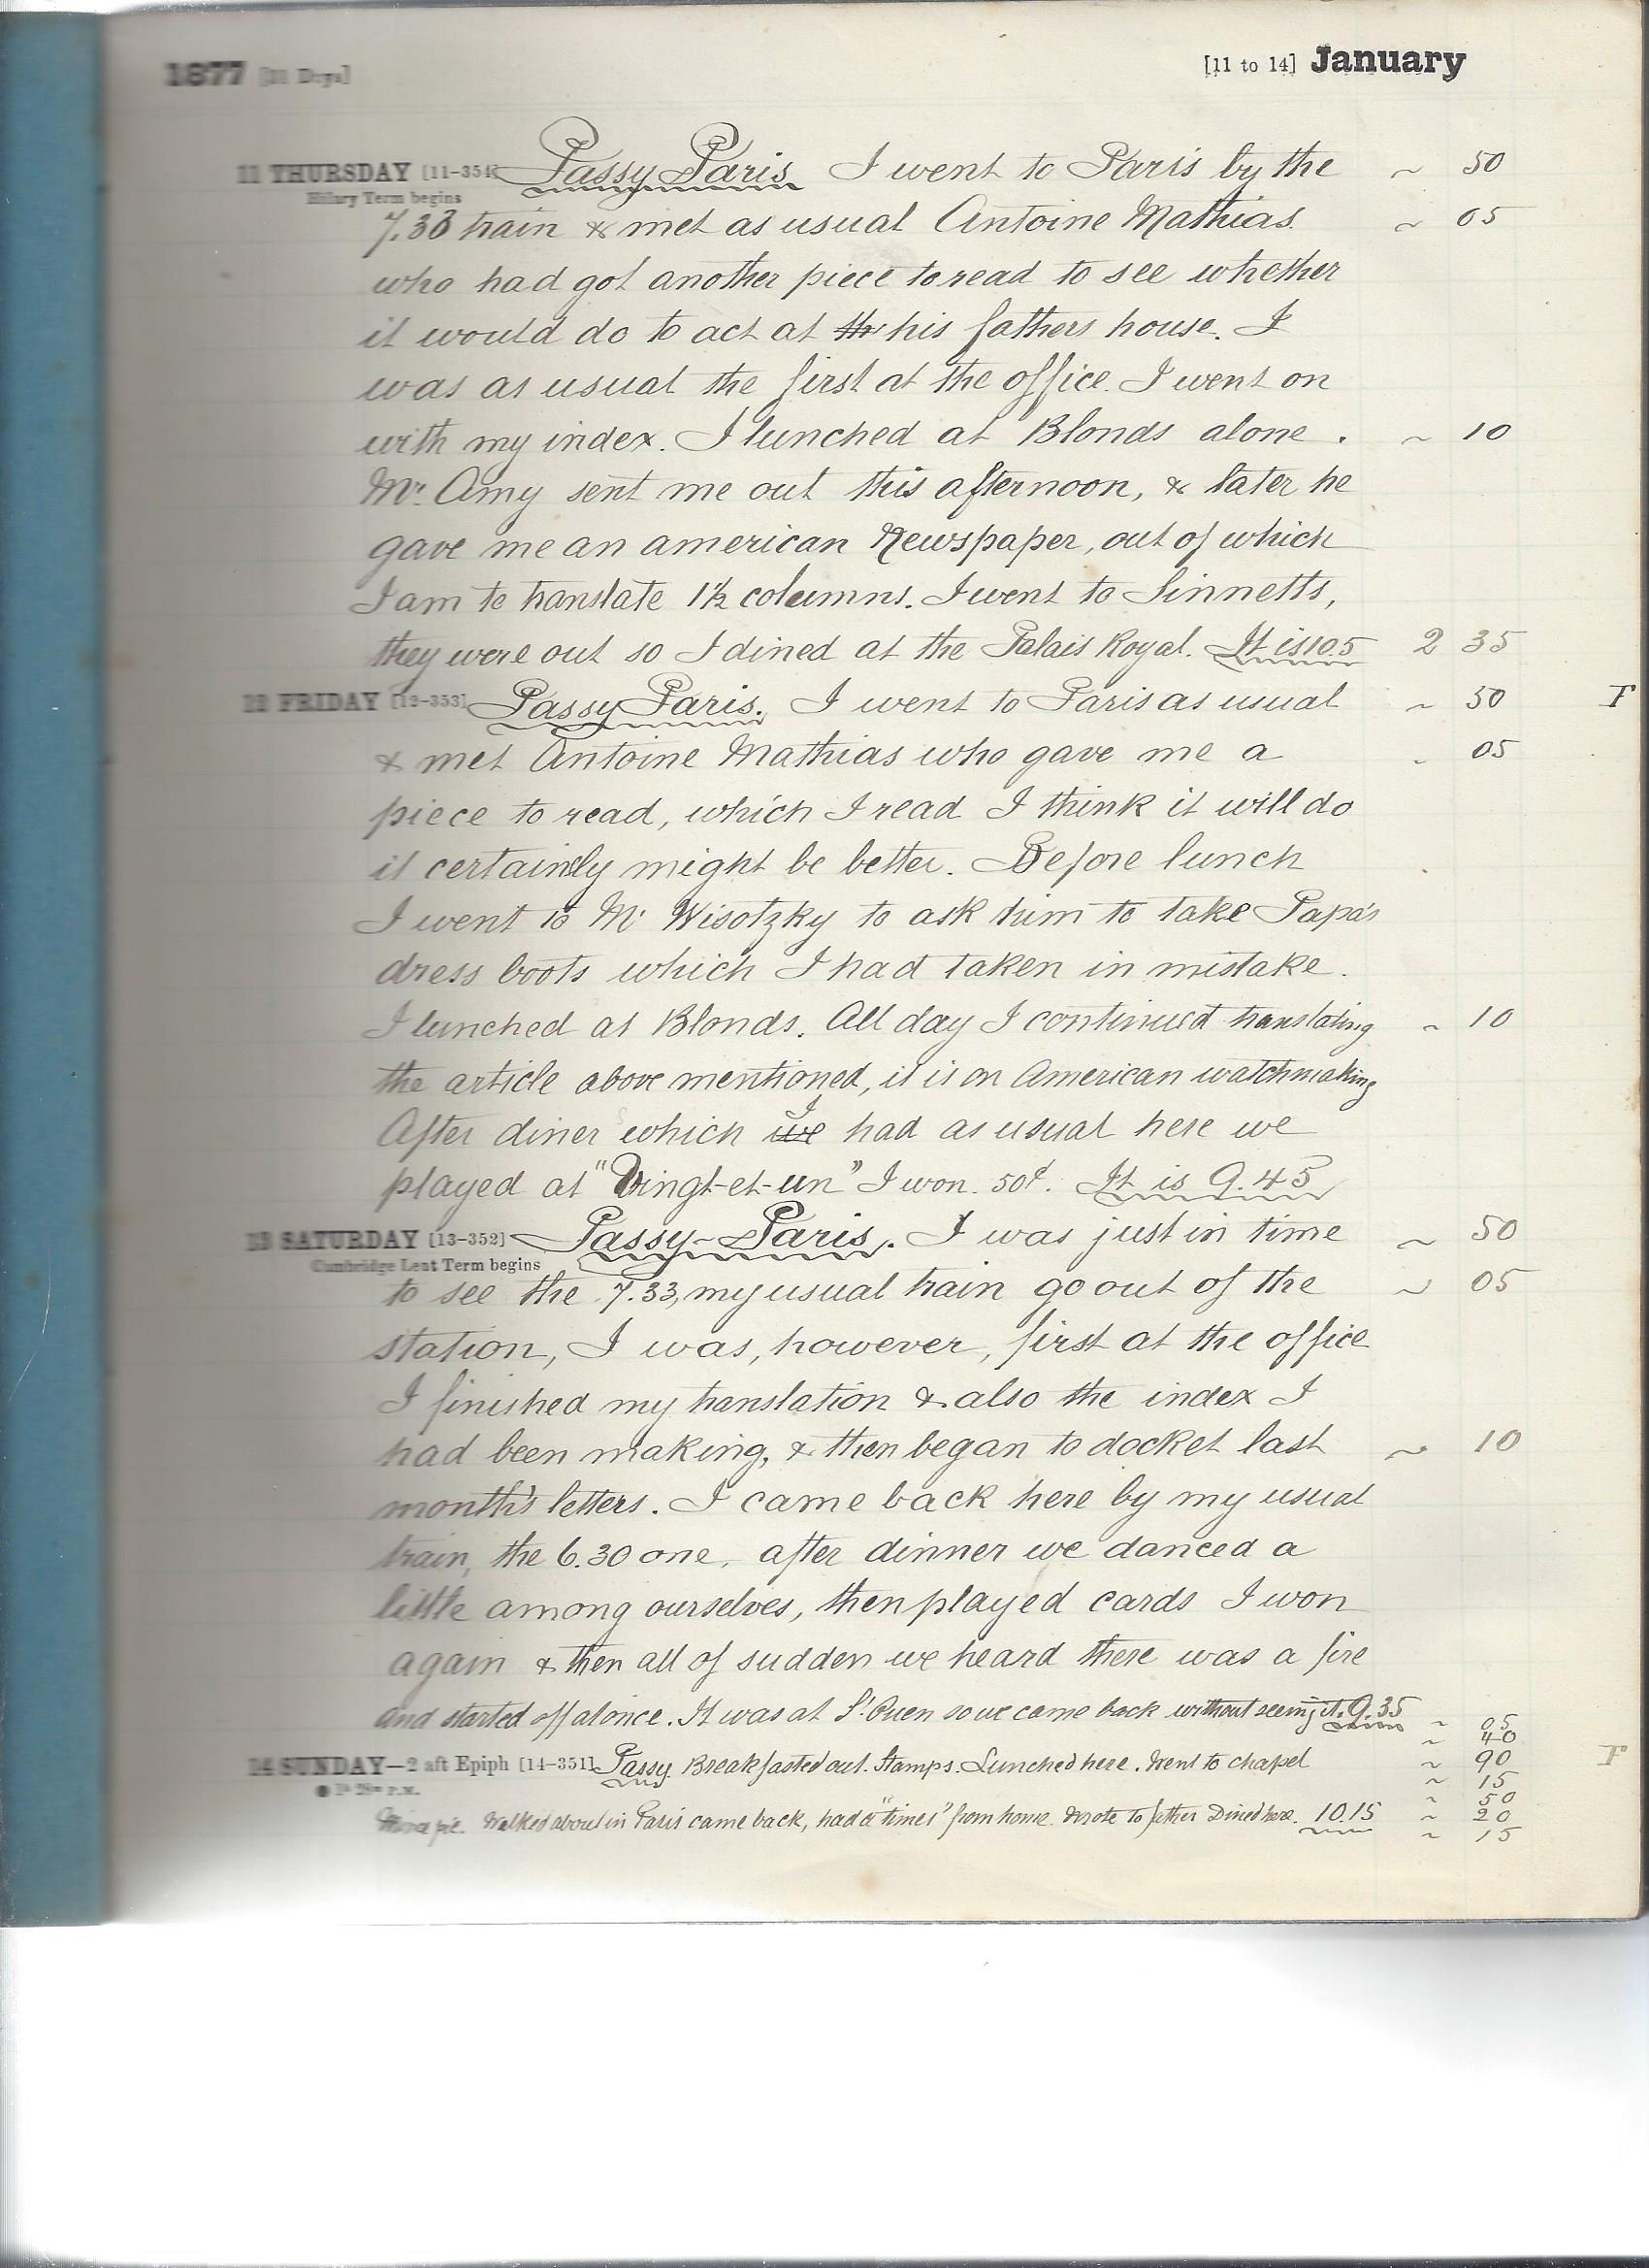 1877 [31 Days] [11 to 14] January
11 THURSDAY [11-354] Passy Paris I went to Paris by the ~ 50
Hilary Term begins
7.33 train & met as usual Antoine Mathias ~ 05
who had got another piece to read to see whether
it would do to act at the his fathers house. I
was as usual the first at the office. I went on
with my index. I lunched at Blonds alone. ~ 10
Mr. Amy sent me out this afternoon, & later he
gave me an american Newspaper, out of which
I am to translate 1½ columns. I went to Sinnetts,
they were out so I dined at the Palais Royal. It is 10.5 2 35
12 FRIDAY [12-353] Passy Paris. I went to Paris as usual ~ 50 F
& met Antoine Mathias who gave me a ~ 05
piece to read, which I read I think it will do
it certainly might be better. Before lunch
I went to Mr Wisotzky to ask him to take Papa's
dress boots which I had taken in mistake.
I lunched at Blonds. All day I continued translating ~ 10
the article above mentioned, it is on American watchmaking
I
After diner which we had as usual here we
played at "Vingt-et-un" I won. 50c. It is 9.45
13 SATURDAY [13-352] Passy-Paris. I was just in time ~ 50
Cambridge Lent Term begins
to see the 7.33, my usual train go out of the ~ 05
station, I was, however, first at the office
I finished my translation & also the index I
had been making, & then began to docket last ~ 10
month's letters. I came back here by my usual
train, the 6.30 one, after dinner we danced a
little among ourselves, then played cards I won
again & then all of sudden we heard there was a fire
and started off at once. It was at St. Ouen so we came back without seeing it. 9.35 ~ 05
~ 40
14 SUNDAY—2 aft Epiph [14-351] Passy. Breakfasted out. Stamps. Lunched here. Went to chapel ~ 90 F
~ 15
~ 50
Mince pie. Walked about in Paris came back, had a "times" from home. Wrote to father Dined here. 10.15 ~ 20
~ 15